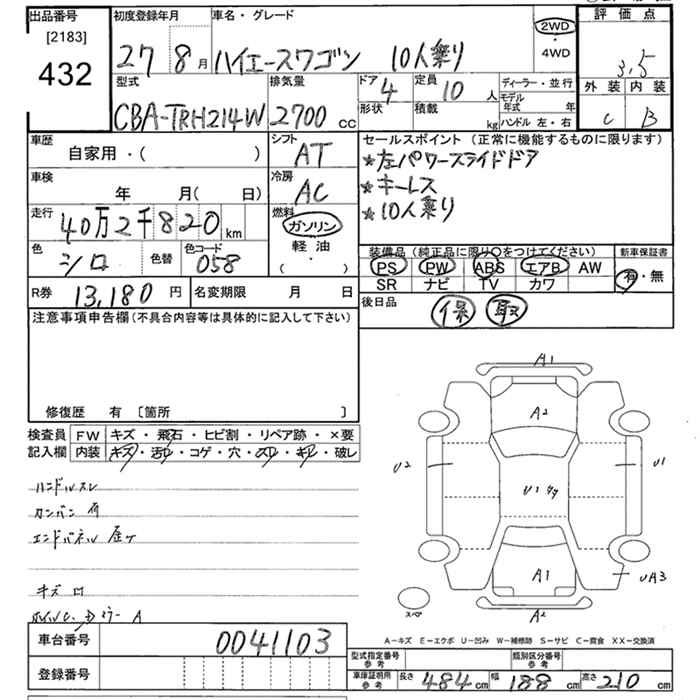 出品番号 初度登録年月 車名・グレード 評価点
[2183] 2WD
432 27 8月 ハイエースワゴン 10人乗り ・ 4WD 3.5
型式 排気量 ドア 4 定員 10人 ディーラー・並行 外装 内装
CBA-TRH214W 2700cc 形状 積載 kg モデル年式 年 C B
ハンドル 左・右
車歴 シフト セールスポイント (正常に機能するものに限ります)
自家用・( ) AT ★左パワースライドドア
車検 冷房 ★キーレス
年 月( 日) AC ★10人乗り
走行 40万2千820km 燃料 ガソリン
軽油
・( )
色 シロ 色替 色コード 058
装備品(純正品に限り○をつけてください) 新車保証書
PS PW ABS エアB AW 有・無
SR ナビ TV カワ
R券 13,180円 名変期限 月 日 後日品 保 取
注意事項申告欄(不具合内容等は具体的に記入して下さい)
修復歴 有 [箇所 ]
検査員 FW キズ・飛石・ヒビ割・リペア跡・×要
記入欄 内装 キズ・汚れ・コゲ・穴・スレ・キレ・破レ
ハンドルスレ
カンバン有
エンドパネル歪ケ
キズ
A1
A2
U2 U1 U1
A1 UA3
スペア A2
A-キズ E-エクボ U-凹み W-補修跡 S-サビ C-腐食 XX-交換済
車台番号 0041103
登録番号
型式指定番号 参考 類別区分番号 参考
車庫証明用 参考 長さ 484cm 幅 188cm 高さ 210cm